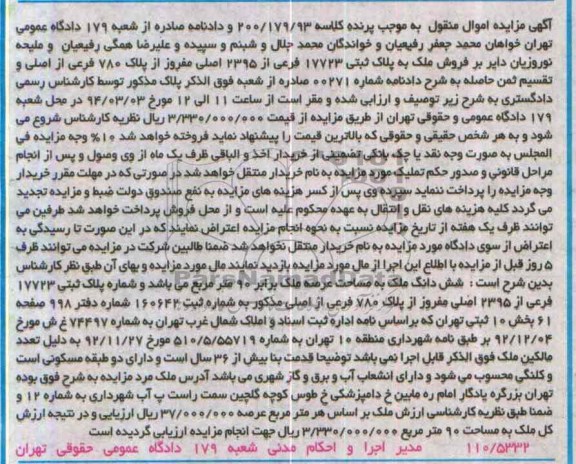 آگهی مزایده اموال منقول به موجب پرنده کلاسه ۲۰۰/۱۷۹/۹۳ و دادنامه صادره از شعبه ۱۷۹ دادگاه عمومی
تهران خواهان محمد جعفر رفیعیان و خواندگان محمد جلال و شبنم و سپیده و علیرضا همگی رفیعیان و ملیحه
نوروزیان دایر بر فروش ملک به پلاک ثبتی ۱۷۷۲۳ فرعی از ۲۳۹۵ اصلی مفروز از پلاک ۷۸۰ فرعی از اصلی و
تقسیم ثمن حاصله به شرح دادنامه شماره ۰۰۲۷۱ صادره از شعبه فوق الذکر پلاک مذکور توسط کارشناس رسمی
دادگستری به شرح زیر توصیف و ارزیابی شده و مقرر است از ساعت ۱۱ الی ۱۲ مورخ ۹۴/۰۳/۰۳ در محل شعبه
۱۷۹ دادگاه عمومی و حقوقی تهران از طریق مزایده از قیمت ۳/۳۳۰/۰۰۰/۰۰۰ ریال نظریه کارشناس شروع می
شود و به هر شخص حقیقی و حقوقی که بالاترین قیمت را پیشنهاد نماید فروخته خواهد شد ۱۰% وجه مزایده فی
المجلس به صورت وجه نقد یا چک بانکی تضمینی از خریدار اخذ و الباقی ظرف یک ماه از وی وصول و پس از انجام
مراحل قانونی و صدور حکم تملیک مورد مزایده به نام خریدار منتقل خواهد شد در صورتی که در مهلت مقرر خریدار
وجه مزایده را پرداخت ننماید سپرده وی پس از کسر هزینه های مزایده به نفع صندوق دولت ضبط و مزایده تجدید
می گردد کلیه هزینه های نقل و انتقال به عهده محکوم علیه است و از محل فروش پرداخت خواهد شد طرفین می
توانند ظرف یک هفته از تاریخ مزایده نسبت به نحوه انجام مزایده اعتراض نمایند که در این صورت تا رسیدگی به
اعتراض از سوی دادگاه مورد مزایده به نام خریدار منتقل نخواهد شد ضمنا طالبین شرکت در مزایده می توانند ظرف
۵ روز قبل از مزایده با اطلاع این اجرا از مال مورد مزایده بازدید نمایند مال مورد مزایده و بهای آن طبق نظر کارشناس
بدین شرح است : شش دانگ ملک به مساحت عرصه ملک برابر ۹۰ متر مربع می باشد و شماره پلاک ثبتی ۱۷۷۲۳
فرعی از ۲۳۹۵ اصلی مفروز از پلاک ۷۸۰ فرعی از اصلی مذکور به شماره ثبت ۱۶۰۶۴۲ شماره دفتر ۹۹۸ صفحه
۶۱ بخش ۱۰ ثبتی تهران که براساس نامه اداره ثبت اسناد و املاک شمال غرب تهران به شماره ۷۴۴۹۷ غ ش مورخ
۹۲/۱۲/۰۴ بر طبق نامه شهرداری منطقه ۱۰ تهران به شماره ۵۱۰/۵/۵۵۷۱۹ مورخ ۹۲/۱۱/۲۷ به دلیل تعدد
مالکین ملک فوق الذکر قابل اجرا نمی باشد توضیحا قدمت بنا بیش از ۳۶ سال است و دارای دو طبقه مسکونی است
و کلنگی محسوب می شود و دارای انشعاب آب و برق و گاز شهری می باشد آدرس ملک مرد مزایده به شرح فوق بوده
تهران بزرگره یادگار امام ره مابین خ دامپزشکی خ طوس کوچه گلچین سمت راست پ آب شهرداری به شماره ۱۲ و
ضمنا طبق نظریه کارشناسی ارزش ملک بر اساس هر متر مربع عرصه ۳۷/۰۰۰/۰۰۰ ریال ارزیابی و در نتیجه ارزش
کل ملک به مساحت ۹۰ متر مربع ۳/۳۳۰/۰۰۰/۰۰۰ ریال جهت انجام مزایده ارزیابی گردیده است
۱۱۰/۵۳۳۲ مدیر اجرا و احکام مدنی شعبه ۱۷۹ دادگاه عمومی حقوقی تهران